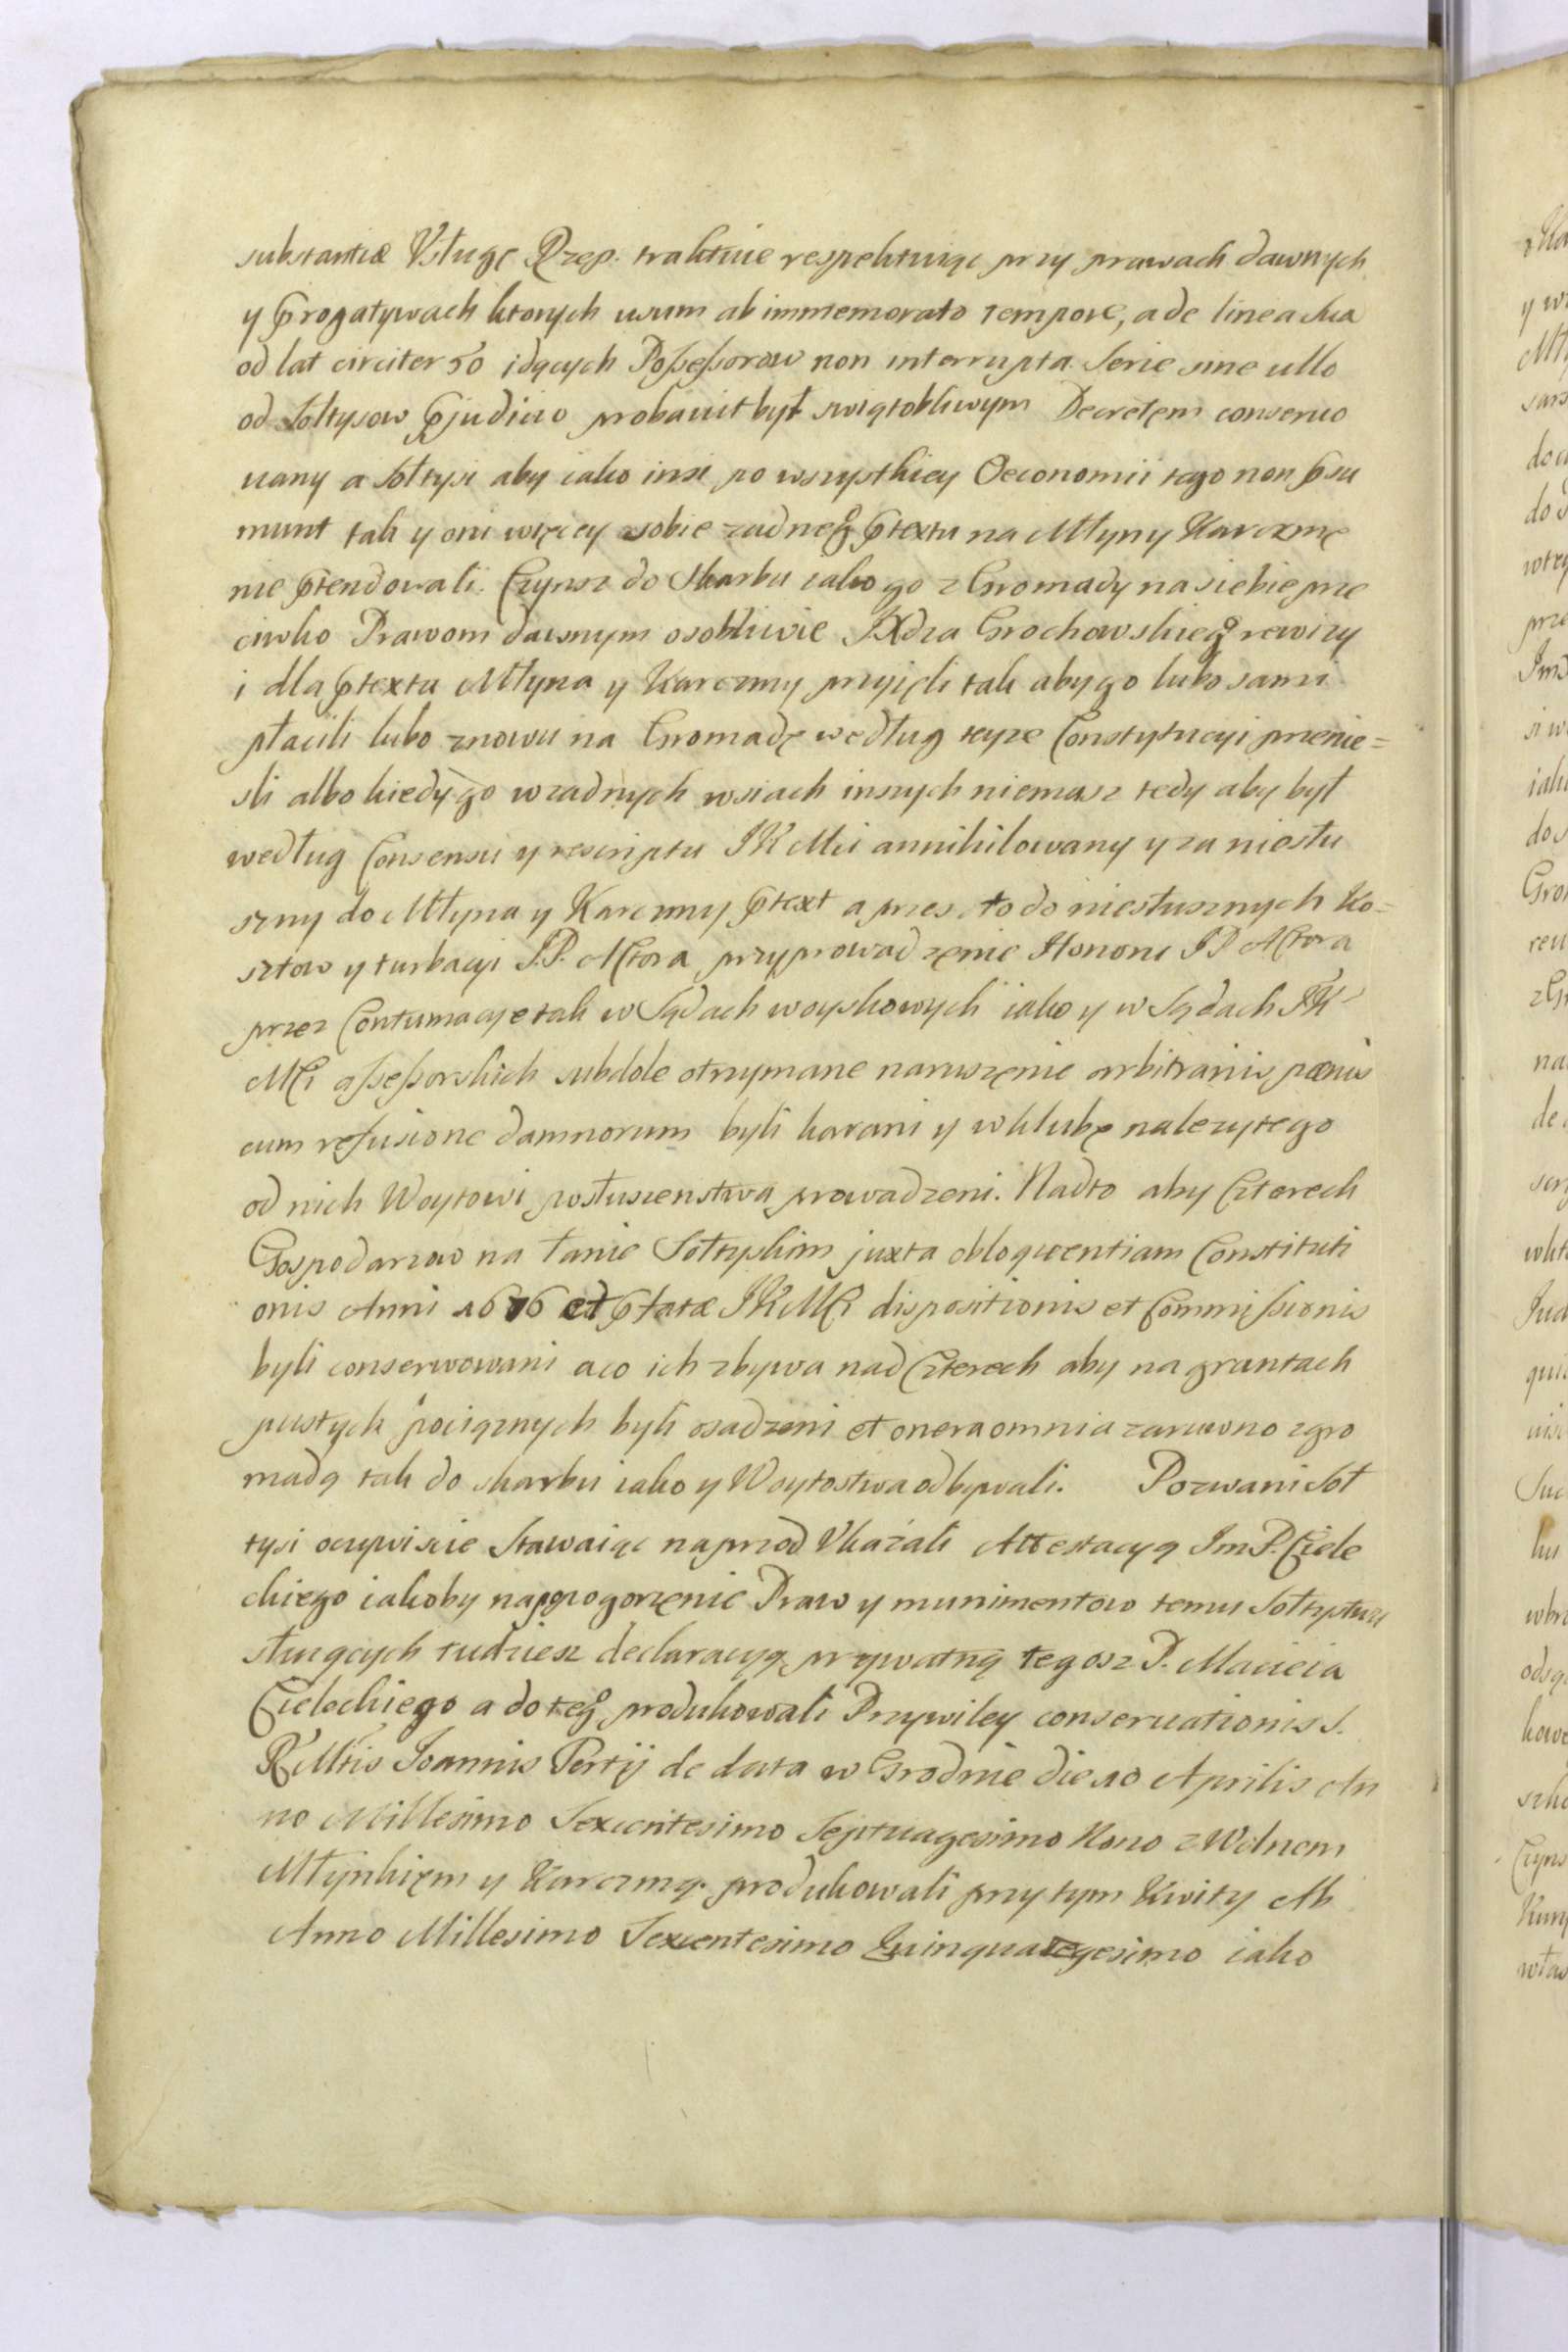 substantiæ Vsługę Rzep. traktuie respektuiąc przy prawach dawnych
y progatywach ktorych usum ab immemorato tempore, a de linea sua
od lat circiter 50 idących Poßeßorow non interrupta Serie sine ullo
od Sołtysow pjudicio probauit był swiątobliwym Decretem conseruo
uany a Sołtysi aby iako insi po wszystkiey Oeconomii tego non psu
munt tak y oni więcey sobie zadneg ptextu na Młyny Karczmę
nie ptendowali. Czynsz do Skarbu iako go z Gromady na siebie prze
ciwko Prawom dawnym osobliwie JXdza Grochowskieg rewizy
i dla ptextu Młyna y Karczmy przyieli tak aby go lubo sami
płacili lubo znowu na Gromadę według teyze Constytucyi przenie=
sli albo kiedy go w zadnych wsiach inszych niemasz tedy aby był
według Consensu y rescriptu JKMci annihilowany y za niesłu
szny do Młyna y Karczmy ptext a przes to do niesłusznych Ko=
sztow y turbacyi J.P. Actora przyprowadzenie Honoru JP Actora
przez Contumacye tak w Sądach woyskowych iako y w Sądach JK
Mci aßeßorskich subdole otrzymane naruszenie arbitrariis pœnis
cum refusione damnorum byli karani y w klubę nalezytego
od nich Woytowi posłuszenstwa prowadzeni. Nadto aby Czterech
Gospodarzow na łanie Sołtyskim juxta obloquentiam Constituti
onis Anni 1676 et ptatæ JKMCi dispositionis et Commißionis
byli conserwowani a co ich zbywa nad Czterech aby na gruntach
pustych pociąznych byli osadzeni et onera omnia zarowno z gro
madą tak do skarbu iako y Woytostwa odbywali. Pozwani Soł
tysi oczywiscie Stawaiąc naprzod Vkazali Attestacyą JmP. Ciele
ckiego iakoby na pogorzenie Praw y munimentow temu Sołtystwu
słuzących tudziesz declaracyą prywatną tegosz P. Macieia
Cieleckiego a do teg produkowali Przywiley conseruationis S.
RMtis Joannis Tertij de data w Grodnie die 10 Aprilis An
no Millesimo Sexcentesimo Septuagesimo Nono z Wolnem
Młynkiem y Karczmą. produkowali przy tym Kwity Ab
Anno Millesimo Sexcentesimo Quinquagesimo iako